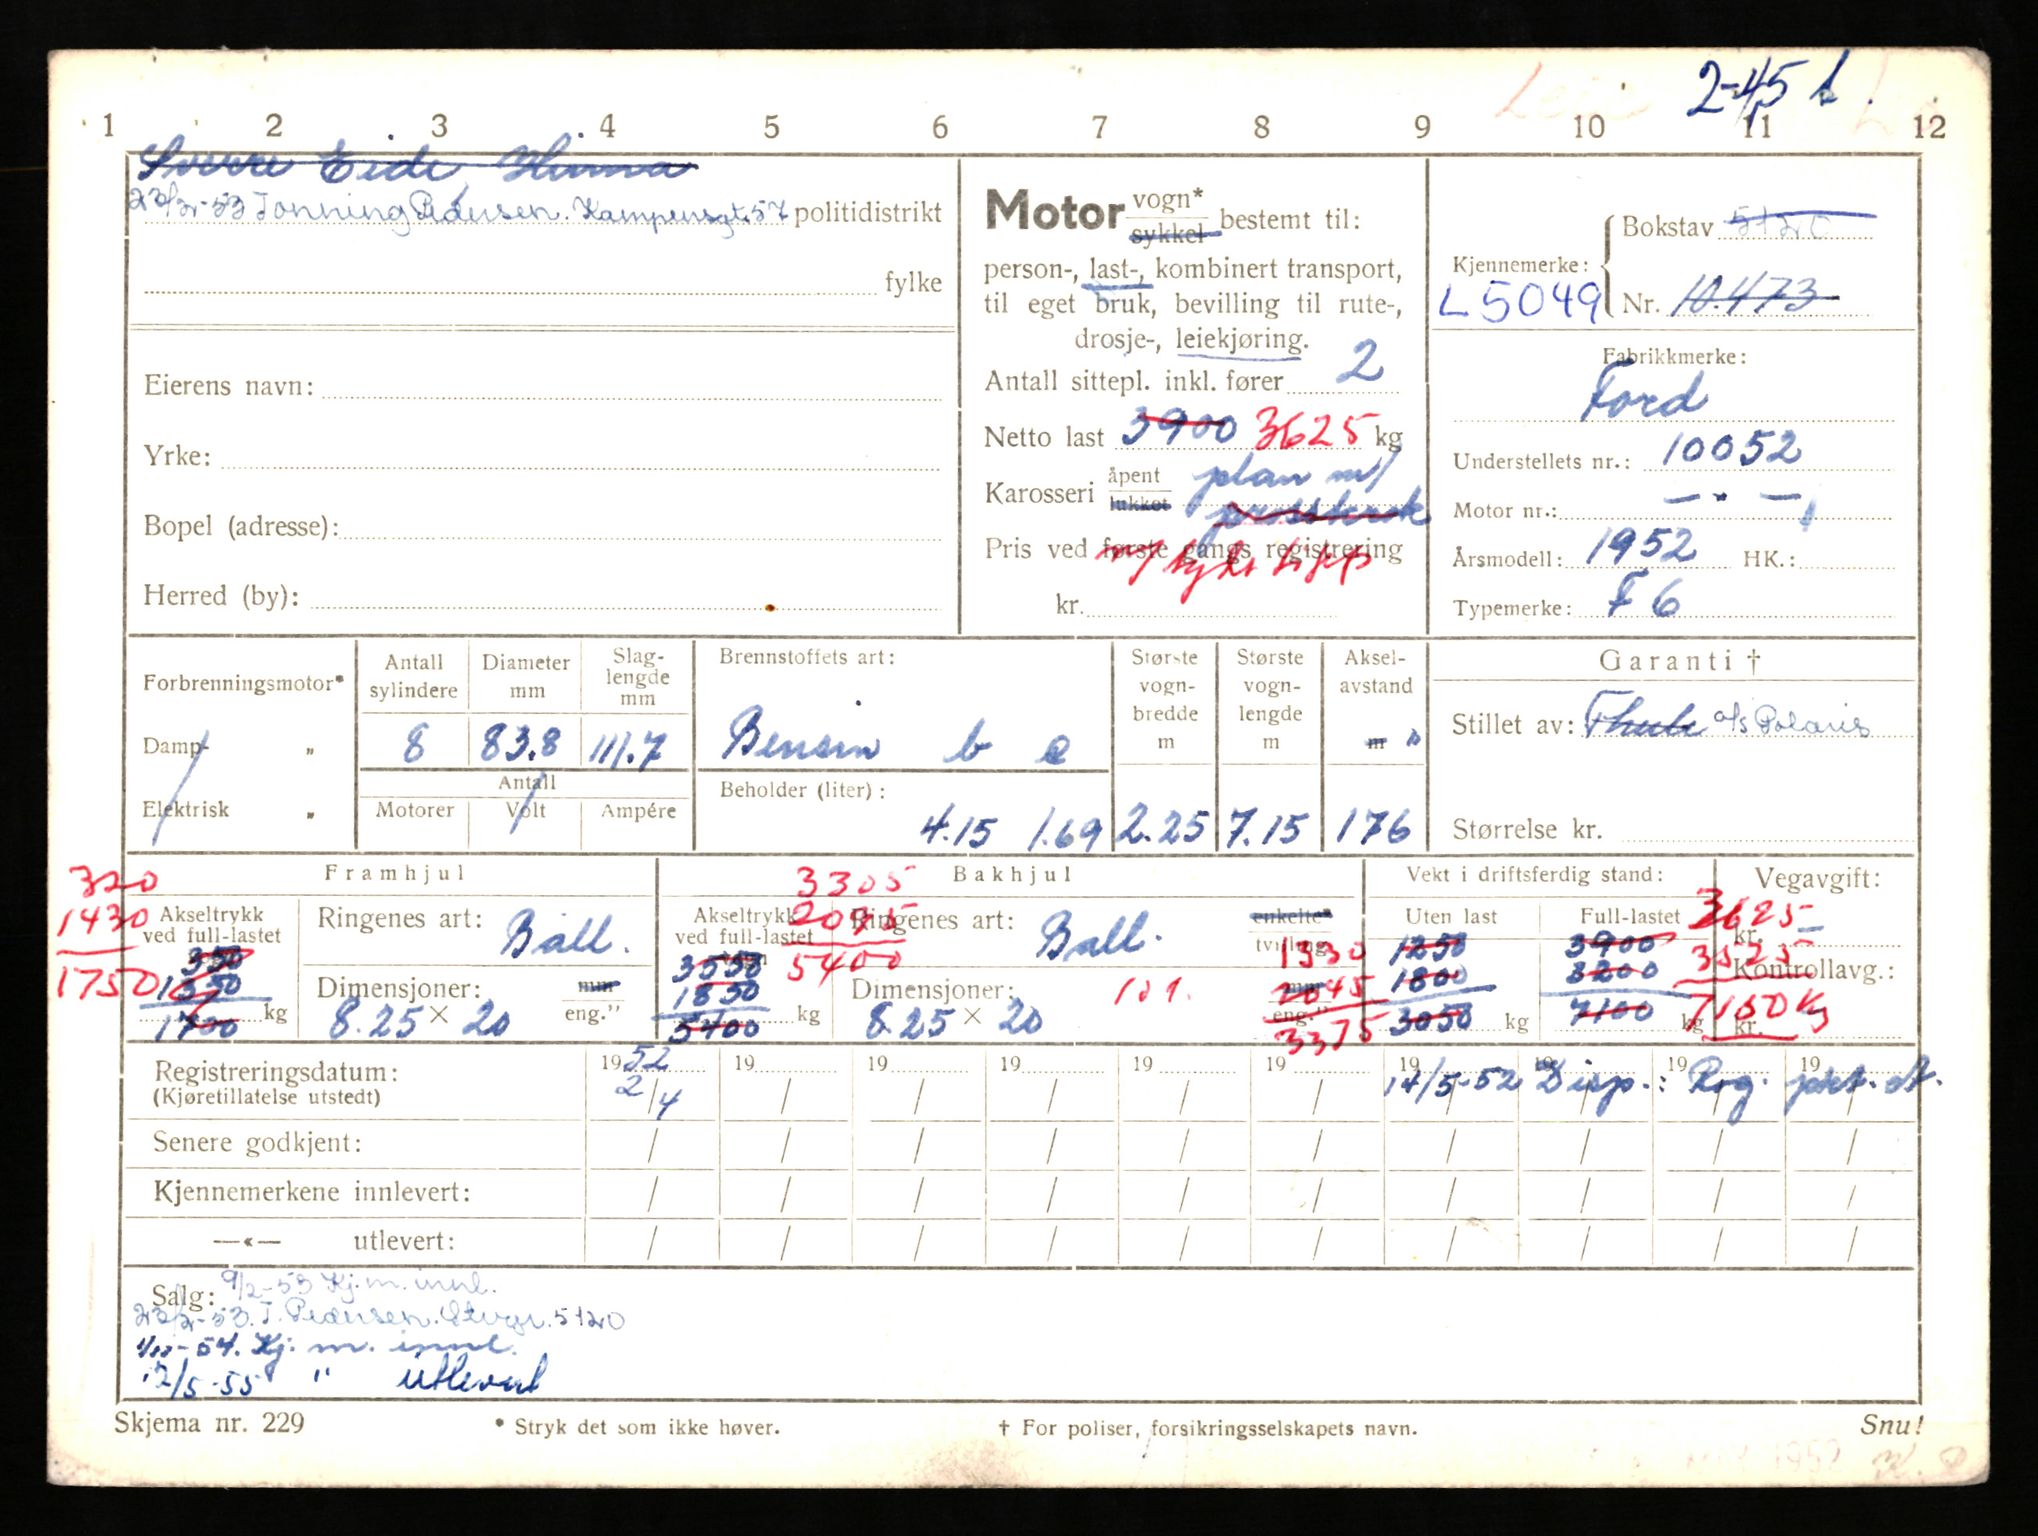 2-45 L.
1 2 3 4 5 6 7 8 9 10 11 12
Sverre Eide, Hinna
23/2-53 Tonning Pedersen. Kampensgt. 57 politidistrikt
fylke
Eierens navn:
Yrke:
Bopel (adresse):
Herred (by):
Motor vogn*
sykkel bestemt til:
person-, last-, kombinert transport,
til eget bruk, bevilling til rute-,
drosje-, leiekjøring.
Antall sittepl. inkl. fører 2
Netto last 3900 3625 kg
Karosseri åpent lukket plan m/
Pris ved første gangs registrering
m/ hydr. tipp
kr.
Kjennemerke: Bokstav 5120
L 5049 Nr. 10.473
Fabrikkmerke:
Ford
Understellets nr.: 10052
Motor nr.: — " —
Årsmodell: 1952 HK.:
Typemerke: F 6
Forbrenningsmotor*
Damp- "
Elektrisk "
Antall sylindere 8
Diameter mm 83.8
Slaglengde mm 111.7
Antall
Motorer Volt Ampére
Brennstoffets art:
Bensin b c
Beholder (liter):
4.15 1.69
Største vognbredde m 2.25
Største vognlengde m 7.15
Akselavstand m " 176
Garanti †
Stillet av: Thule a/s Polaris
Størrelse kr.
Framhjul
320
1430
1750
Akseltrykk ved full-lastet vogn
350
1350
1700 kg
Ringenes art: Ball.
Dimensjoner: mm eng."
8.25 × 20
Bakhjul
3305
2095
5400
Akseltrykk ved full-lastet vogn
3550
1850
5400 kg
Ringenes art: Ball. enkelte* tvilling
Dimensjoner: mm eng."
8.25 × 20
1330
2045
3375
Vekt i driftsferdig stand:
Uten last
1250
1800
3050 kg
Full-lastet
3900
3200
7100 kg
Vegavgift:
kr. —
Kontrollavg.:
kr.
3625
3525
7150 kg
Registreringsdatum:
(Kjøretillatelse utstedt)
1952 19 19 19 19 19 19 19 19 19
2/4
14/5-52 Disp.: Rog.
Senere godkjent:
Kjennemerkene innlevert:
—«— utlevert:
Salg: 9/2-53 Kj. m. innl.
23/2-53. T. Pedersen. Stvgr. 5120
1/12-54. Kj. m. innl.
12/5-55 " utlevert
Skjema nr. 229
* Stryk det som ikke høver.
† For poliser, forsikringsselskapets navn.
Snu!